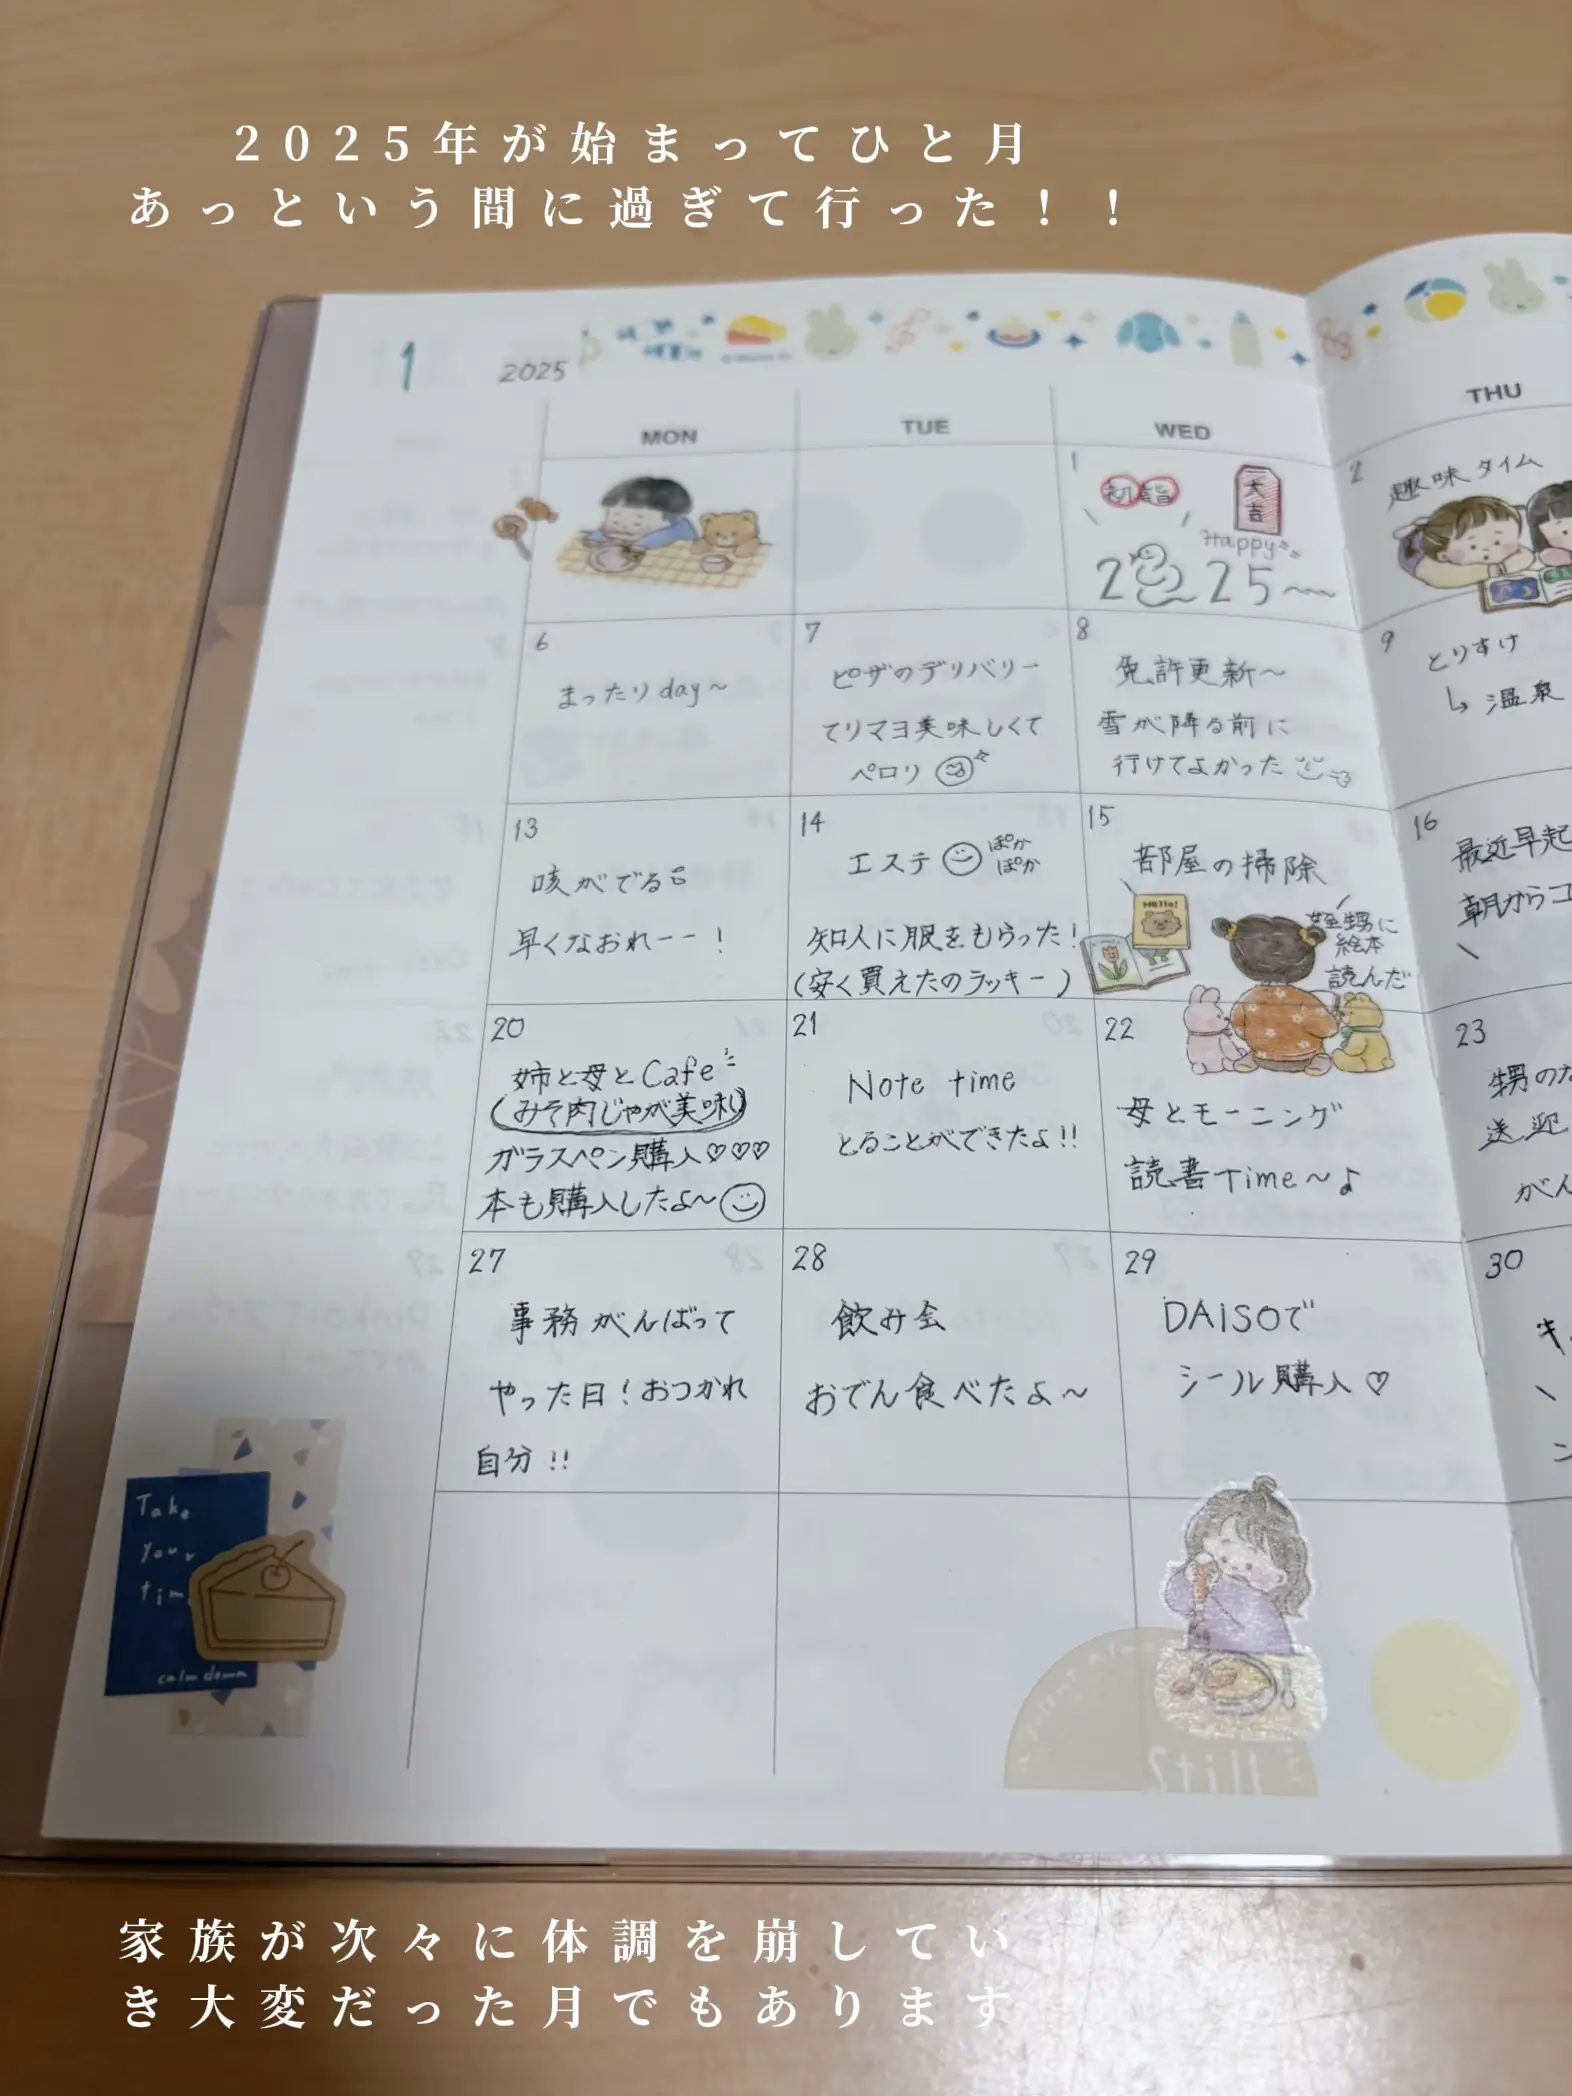 2025年が始まってひと月
あっという間に過ぎて行った！！
1
2025
MON
TUE
WED
THU
1
初詣
大吉
Happy
2025
2
趣味タイム
6
まったりday~
7
ピザのデリバリー
てりマヨ美味しくて
ペロリ
8
免許更新~
雪が降る前に
行けてよかった
9
とりすけ
↳温泉
13
咳がでる
早くなおれーー!
14
エステ
ぽか
ぽか
知人に服をもらった!
(安く買えたのラッキー)
15
部屋の掃除
Hello!
姪甥に
絵本
読んだ
16
最近早起
朝から
20
姉と母とCafe
(みそ肉じゃが美味しい)
ガラスペン購入♡♡♡
本も購入したよ~
21
Note time
とることができたよ!!
22
母とモーニング
読書Time~♪
23
甥の
送迎
がん
27
事務がんばって
やった日!おつかれ
自分!!
28
飲み会
おでん食べたよ~
29
DAISOで
シール購入♡
30
Take
your
tim
calm down
家族が次々に体調を崩してい
き大変だった月でもあります